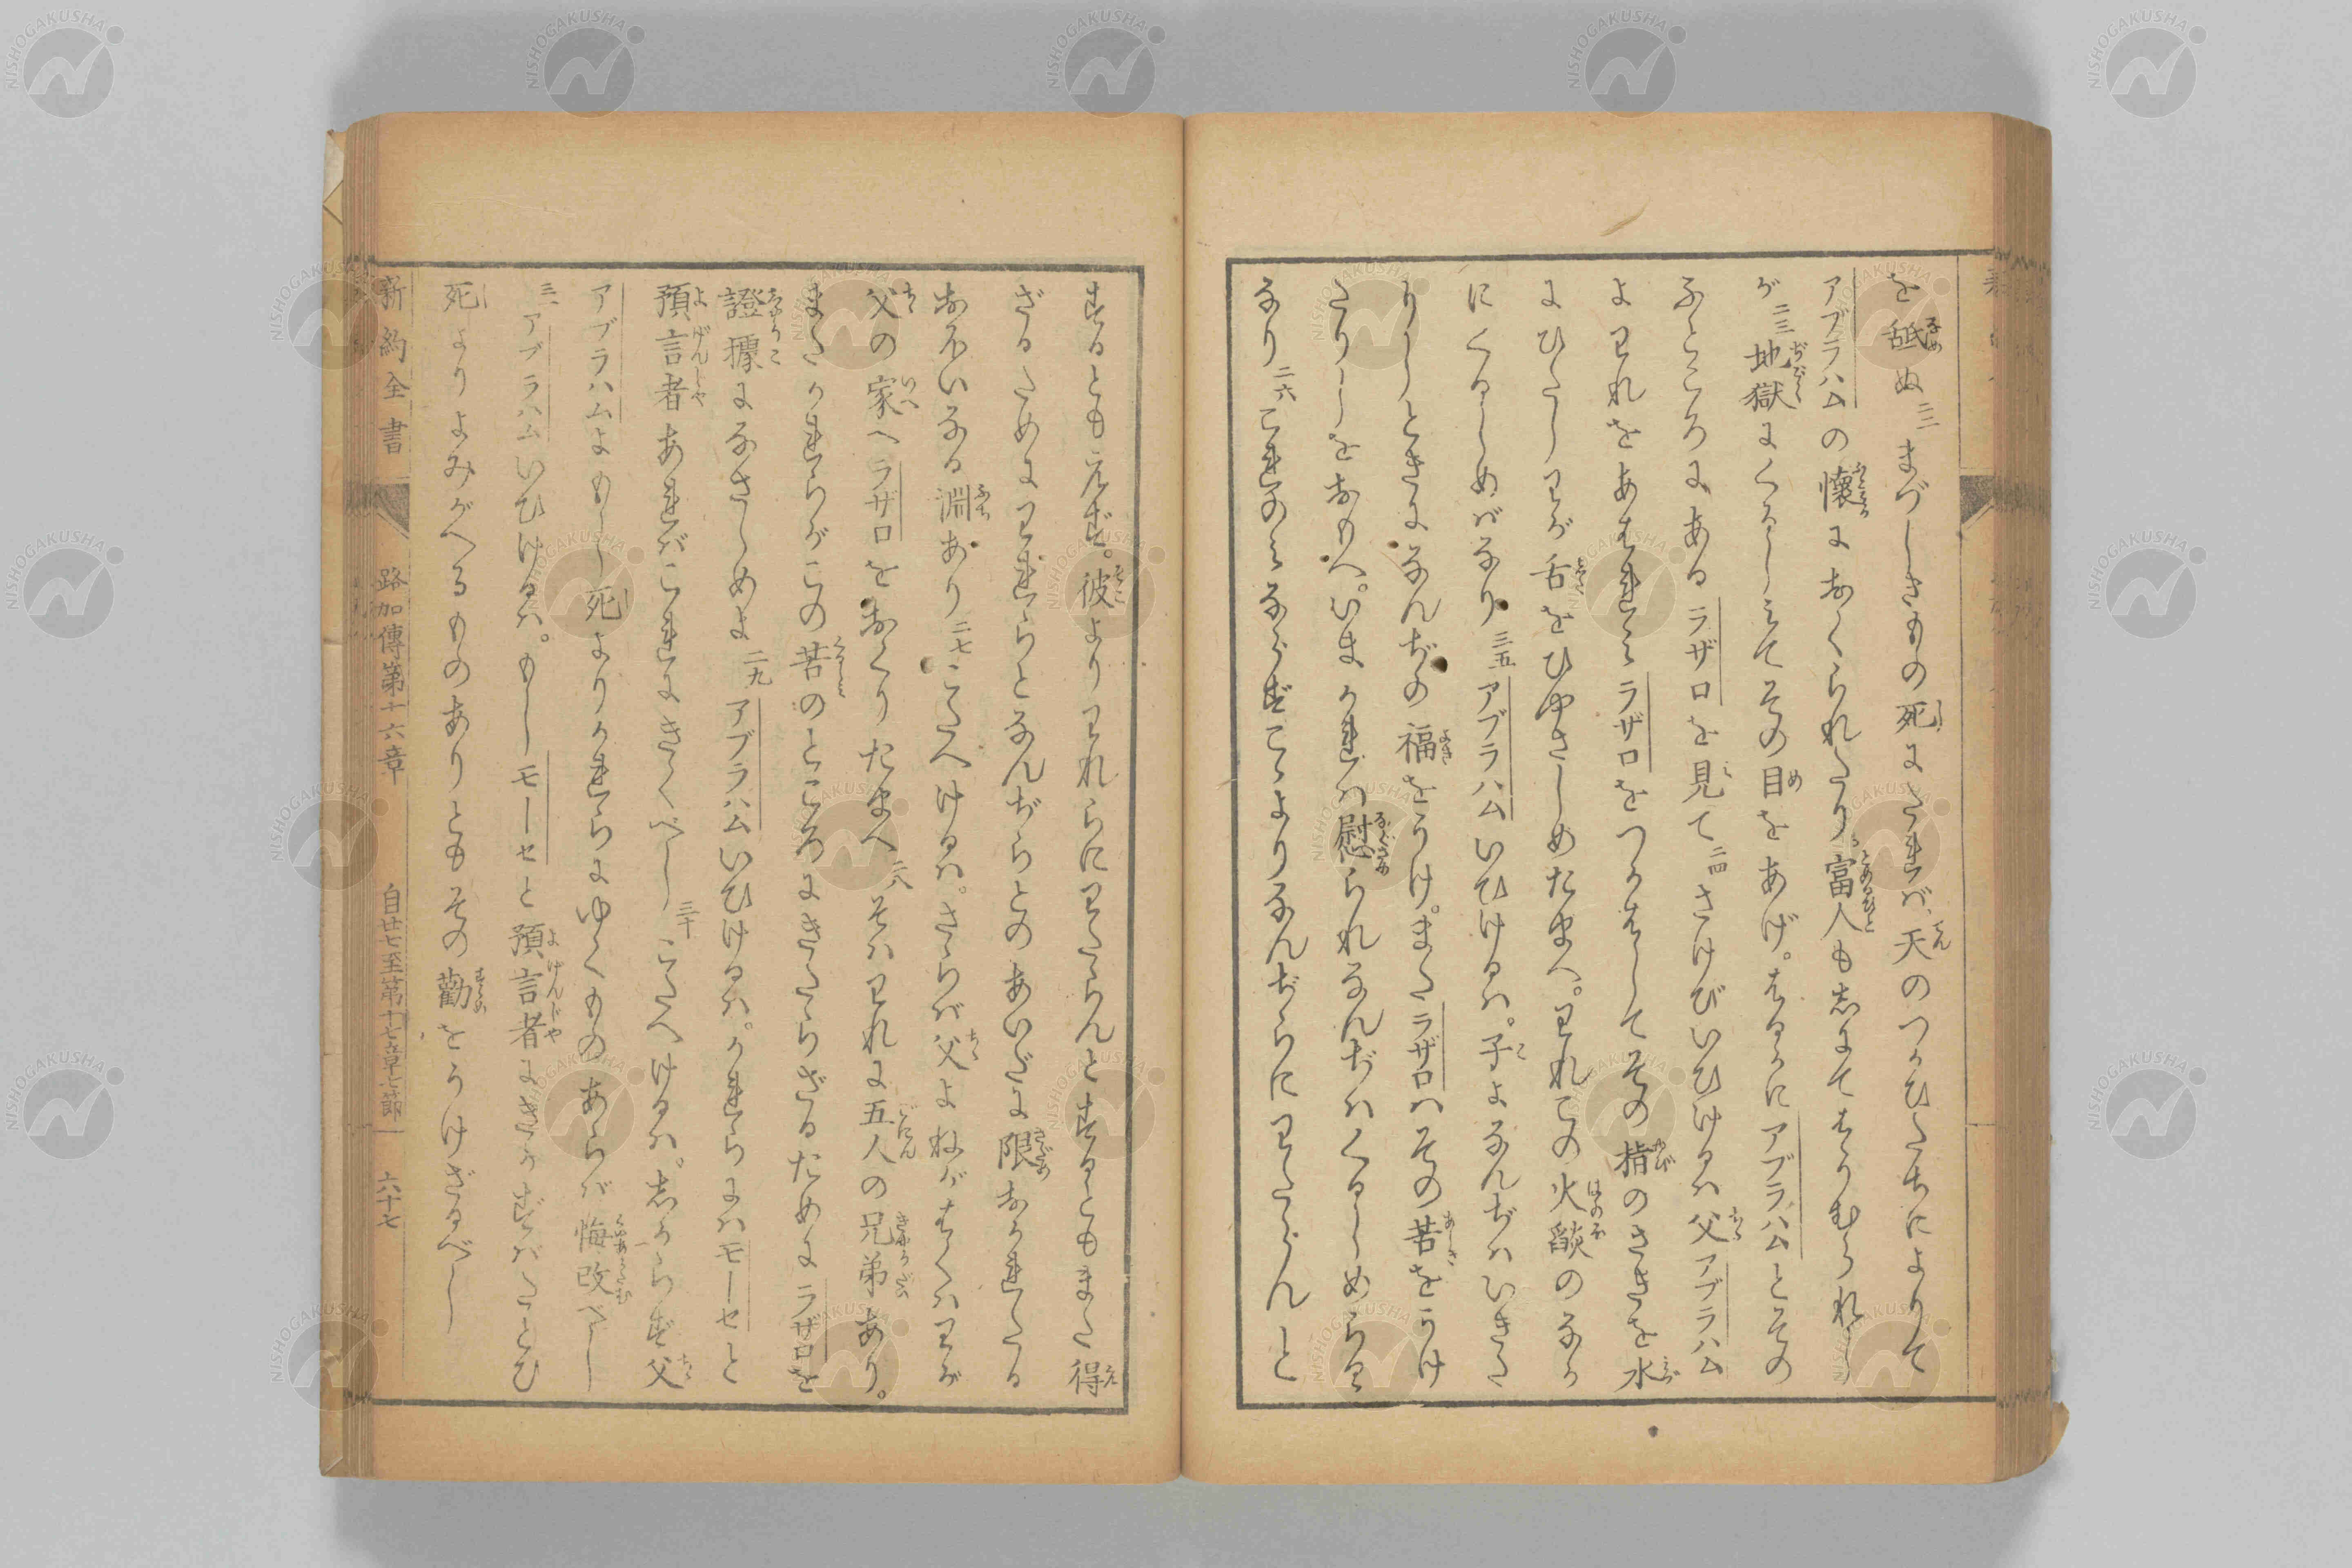 を舐ぬ二二まづしきもの死にたればヽ天のつかひたちによりて
アブラハムの懐におくられたり。富人も志にてはうむられし
が二三地獄にくるしみてその目をあげ。はるかにアブラハムとその
ふところにあるラザロを見て二四さけびいひけるハ父アブラハム
よわれをあはれみラザロをつかはしてその指のさきを水
にひたしわが舌をひやさしめたまへ。われこの火燄のなか
にくるしめばなり二五アブラハムいひけるハ。子よなんぢハいきた
りしときになんぢの福をうけ。またラザロハその苦をうけ
たりしをおもへ。いまかれハ慰られなんぢハくるしめらる
なり二六これのみならずこゝよりなんぢらにわたらんと
するともえず。彼よりわれらにわたらんとするともまた得
ざるためにわれらとなんぢらとのあいだに限おかれたる
おほいなる淵あり二七こたへけるハ。さらバ父よねがはくハわが
父の家へラザロをおくりたまへ二八そハわれに五人の兄弟あり。
またかれらがこの苦のところにきたらざるためにラザロを
證據になさしめよ二九アブラハムいひけるハ。かれらにハモーセと
預言者あればこれにきくべし三十こたへけるハ。志からず父
アブラハムよもし死よりかれらにゆくものあらバ悔改べし
三一アブラハムいひけるハ。もしモーセと預言者にきかずバたとひ
死よりよみがへるものありともその勸をうけざるべし
新約全書 路加傳第十六章 自廿七至第十七章七節 六十七